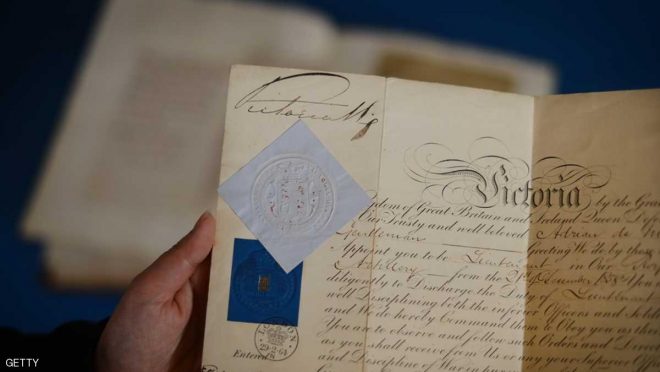 Victoria R
Victoria by the Gra
dom of Great Britain and Ireland Queen Def
Our Trusty and well beloved Adrian de M
Gentleman Greeting We do by these
Appoint you to be Lieutenant in Our
Artillery from the 21st December You
diligently to Discharge the Duty of Lieutenant
well Disciplining both the inferior Officers and Soldi
and We do hereby Command them to Obey you as thei
You are to observe and follow such Orders and Direct
as you shall receive from Us or any your Superior Offi
and Discipline of War in pursuan
LONDON
29-2-64
Entered
GETTY